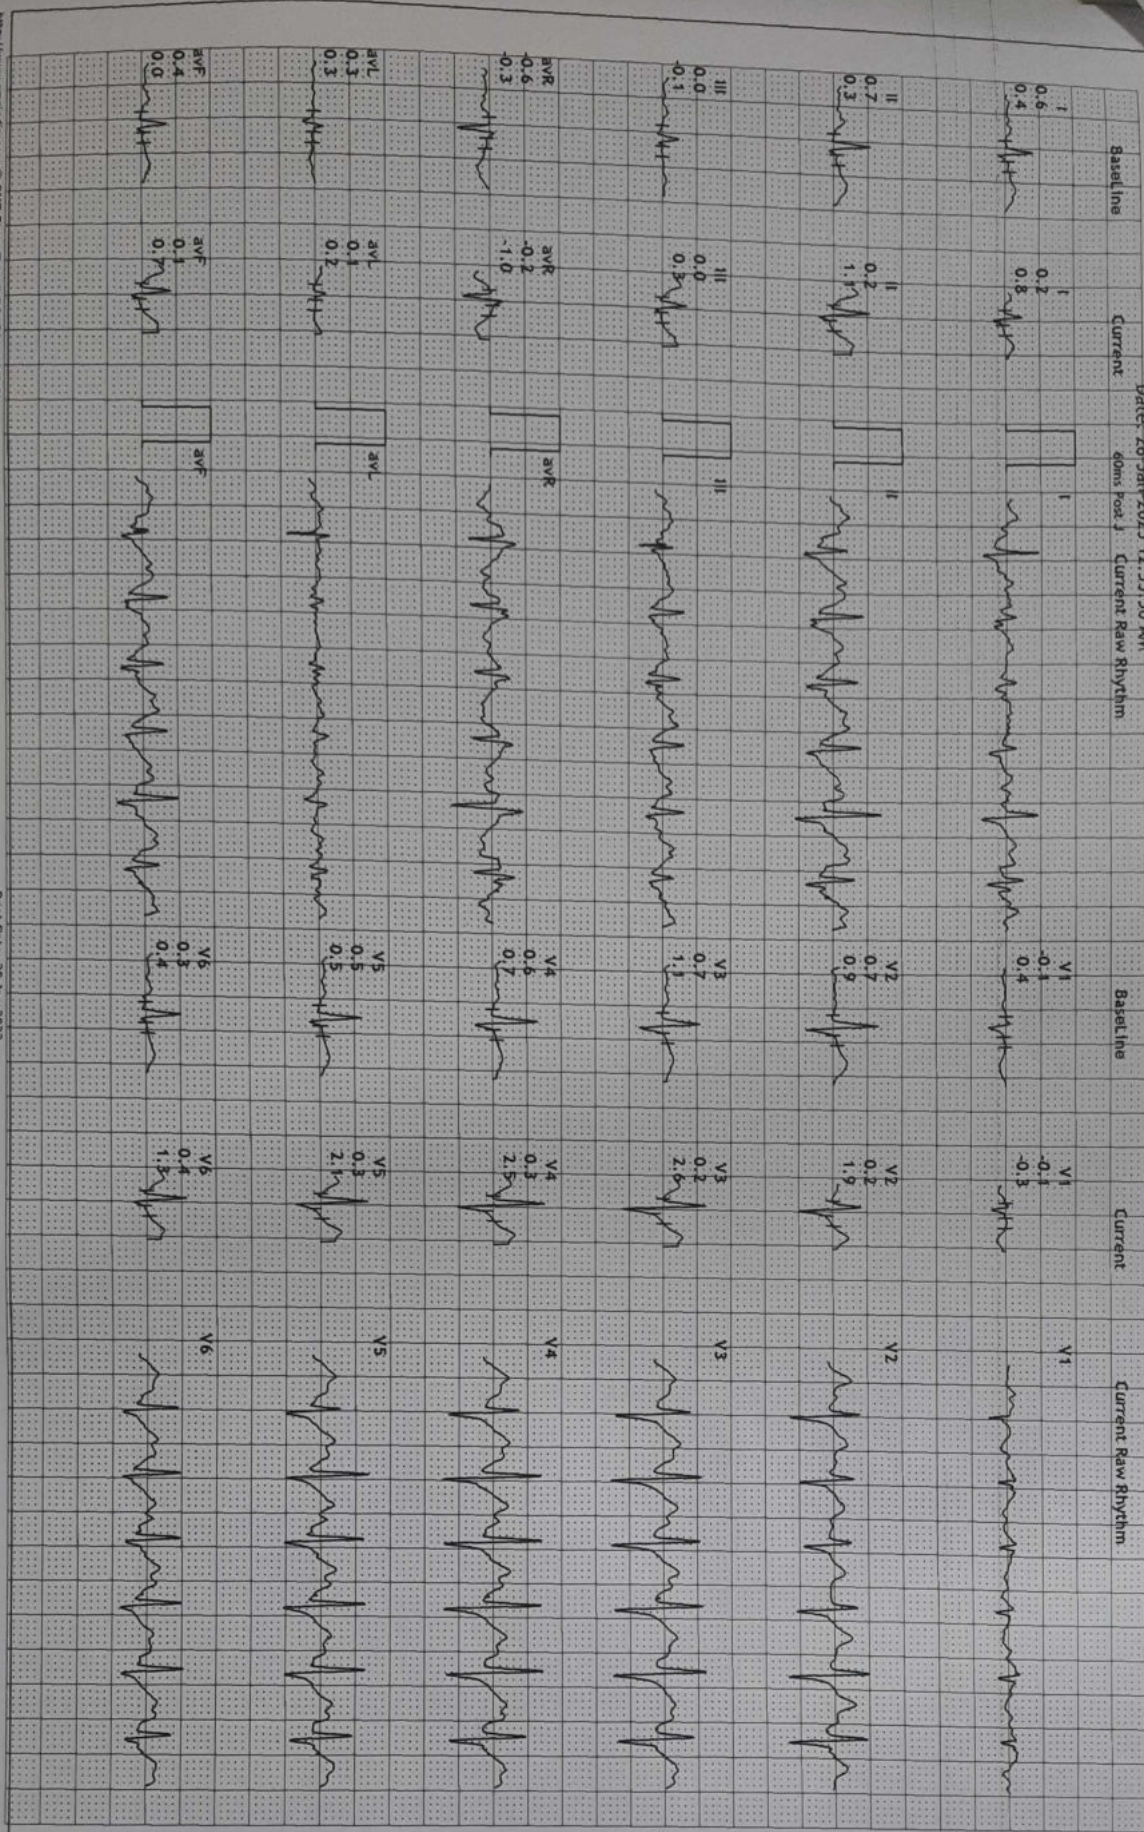 BaseLine
Current
60ms Post J
Current Raw Rhythm
BaseLine
Current
Current Raw Rhythm
I
0.6
0.4
I
0.2
0.8
I
V1
-0.1
0.4
V1
-0.1
-0.3
V1
II
0.7
0.3
II
0.2
1.1
II
V2
0.7
0.9
V2
0.2
1.9
V2
III
0.0
-0.1
III
0.0
0.3
III
V3
0.7
1.1
V3
0.2
2.6
V3
avR
-0.6
-0.3
avR
-0.2
-1.0
avR
V4
0.6
0.7
V4
0.3
2.5
V4
avL
0.3
0.3
avL
0.1
0.2
avL
V5
0.5
0.5
V5
0.3
2.1
V5
avF
0.4
0.0
avF
0.1
0.7
avF
V6
0.3
0.4
V6
0.4
1.3
V6